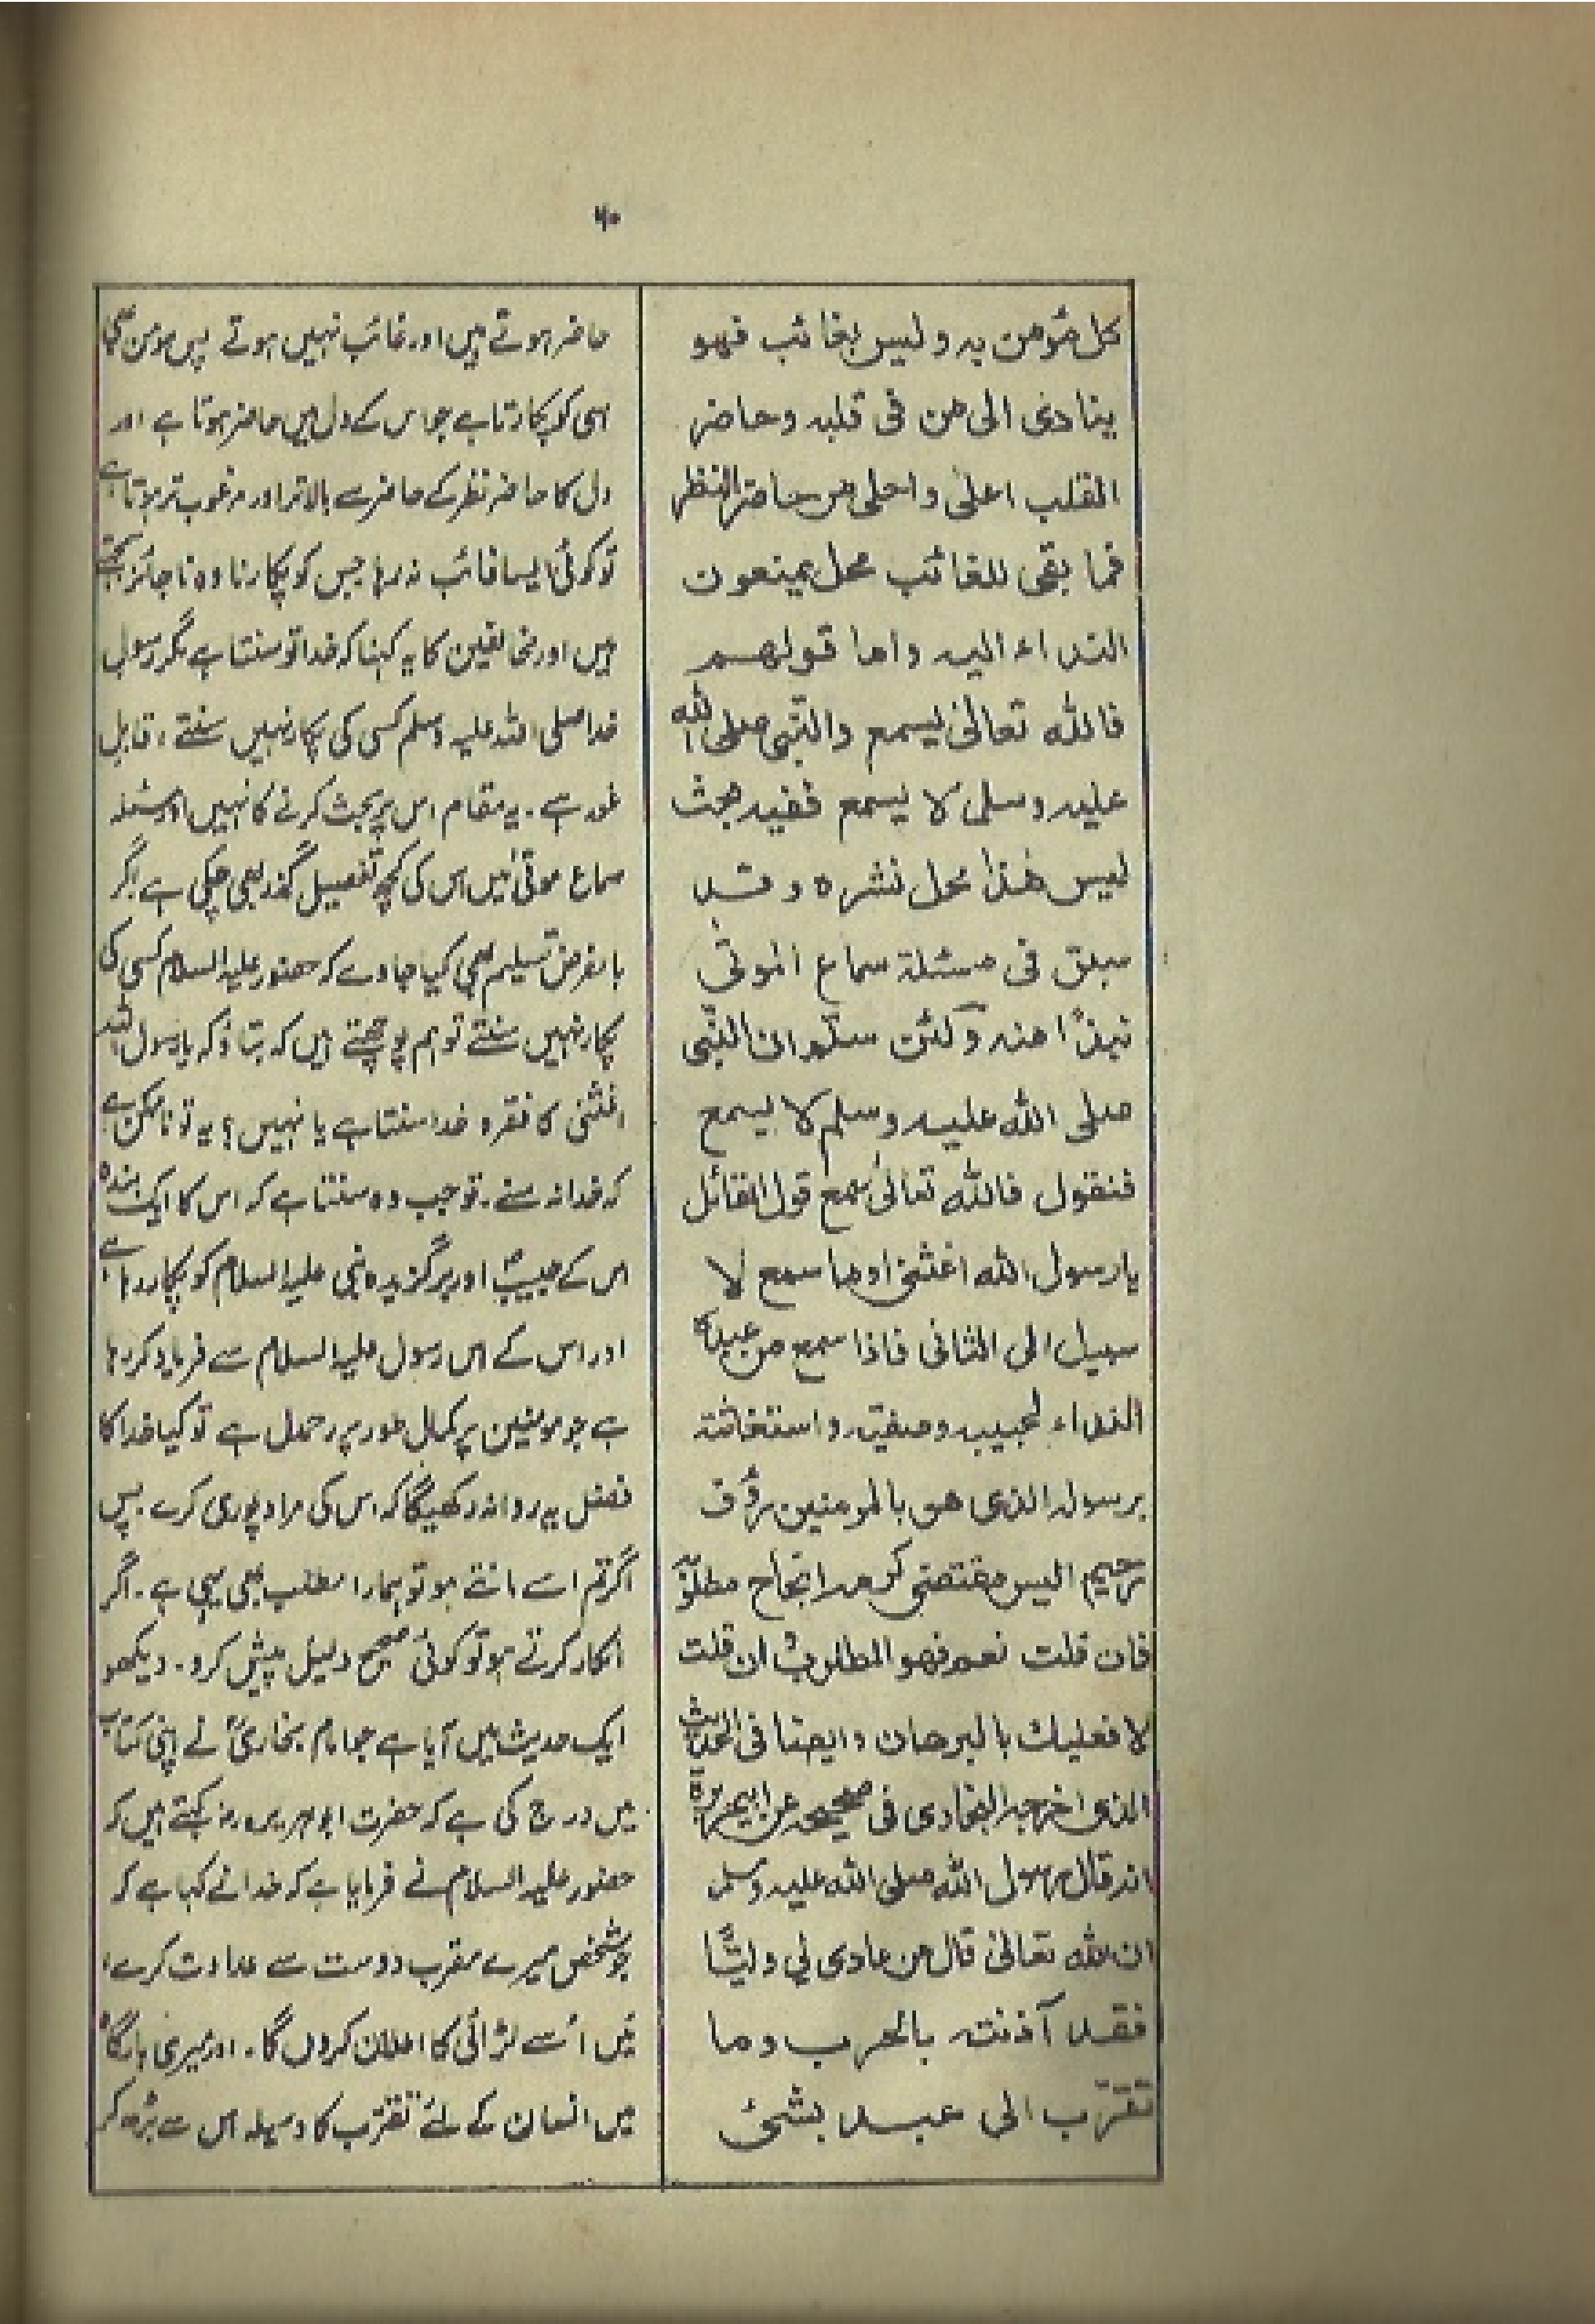 ۶۰
كل مؤمن به وليس بغائب فهو
ينادى الى من فى قلبه وحاضر
القلب اعلىٰ واحلى من حاضر النظر
فما بقى للغائب محل يمنعون
النداء اليه واما قولهم
فالله تعالىٰ يسمع والنّبى صلى الله
عليه وسلم لا يسمع ففيه بحث
ليس هٰذا محل نشره وقد
سبق فى مسئلة سماع الموتى
نبذًا منه ولئن سلّم ان النّبى
صلى الله عليه وسلم لا يسمع
فنقول فالله تعالىٰ سمع قول القائل
يا رسول الله اغثنى او ما سمع لا
سبيل الى الثانى فاذا سمع من عبده
النداء لحبيبه وصفيّه واستغاثته
برسوله الذى هو بالمومنين رؤف
رحيم اليس مقتضى كرمه انجاح مطلوبه
فان قلت نعم فهو المطلوب وان قلت
لا فعليك بالبرهان وايضا فى الحديث
الذى اخرجه البخارى فى صحيحه عن ابى هريرة
انه قال رسول الله صلى الله عليه وسلم
ان الله تعالىٰ قال من عادى لى وليًّا
فقد آذنته بالحرب وما
تقرّب الى عبد بشئ
حاضر ہوتے ہیں اور غائب نہیں ہوتے پس مومن تو
اسی کو پکارتا ہے جو اس کے دل میں حاضر ہوتا ہے اور
دل کا حاضر نظر کے حاضر سے بالاتر اور مرغوب تر ہوتا ہے
تو کوئی ایسا غائب نہ رہا جس کو پکارنا وہ ناجائز سمجھتے
ہیں اور مخالفین کا یہ کہنا کہ خدا تو سنتا ہے مگر رسول
خدا صلی اللہ علیہ وسلم کسی کی پکار نہیں سنتے، قابل
غور ہے۔ یہ مقام اس پر بحث کرنے کا نہیں اور مسئلہ
سماع موتیٰ میں اس کی کچھ تفصیل گذر بھی چکی ہے اگر
بالفرض تسلیم بھی کیا جاوے کہ حضور علیہ السلام کسی کی
پکار نہیں سنتے تو ہم پوچھتے ہیں کہ بتاؤ کہ یا رسول اللہ
اغثنی کا فقرہ خدا سنتا ہے یا نہیں؟ یہ تو ناممکن ہے
کہ خدا نہ سنے۔ تو جب وہ سنتا ہے کہ اس کا ایک بندہ
اس کے حبیبؐ اور برگزیدہ نبی علیہ السلام کو پکار رہا ہے
اور اس کے اس رسول علیہ السلام سے فریاد کر رہا
ہے جو مومنین پر کمال طور پر رحمدل ہے تو کیا خدا کا
فضل یہ روا نہ رکھیگا کہ اس کی مراد پوری کرے۔ پس
اگر تم اسے مانتے ہو تو ہمارا مطلب بھی یہی ہے۔ اگر
انکار کرتے ہو تو کوئی صحیح دلیل پیش کرو۔ دیکھو
ایک حدیث میں آیا ہے جو امام بخاریؒ نے اپنی کتاب
میں درج کی ہے کہ حضرت ابوہریرہ رضہ کہتے ہیں کہ
حضور علیہ السلام نے فرمایا ہے کہ خدا نے کہا ہے کہ
جو شخص میرے مقرب دوست سے عداوت کرے،
میں اُسے لڑائی کا اعلان کروں گا۔ اور میری بارگاہ
میں انسان کے لئے تقرّب کا وسیلہ اس سے بڑھ کر